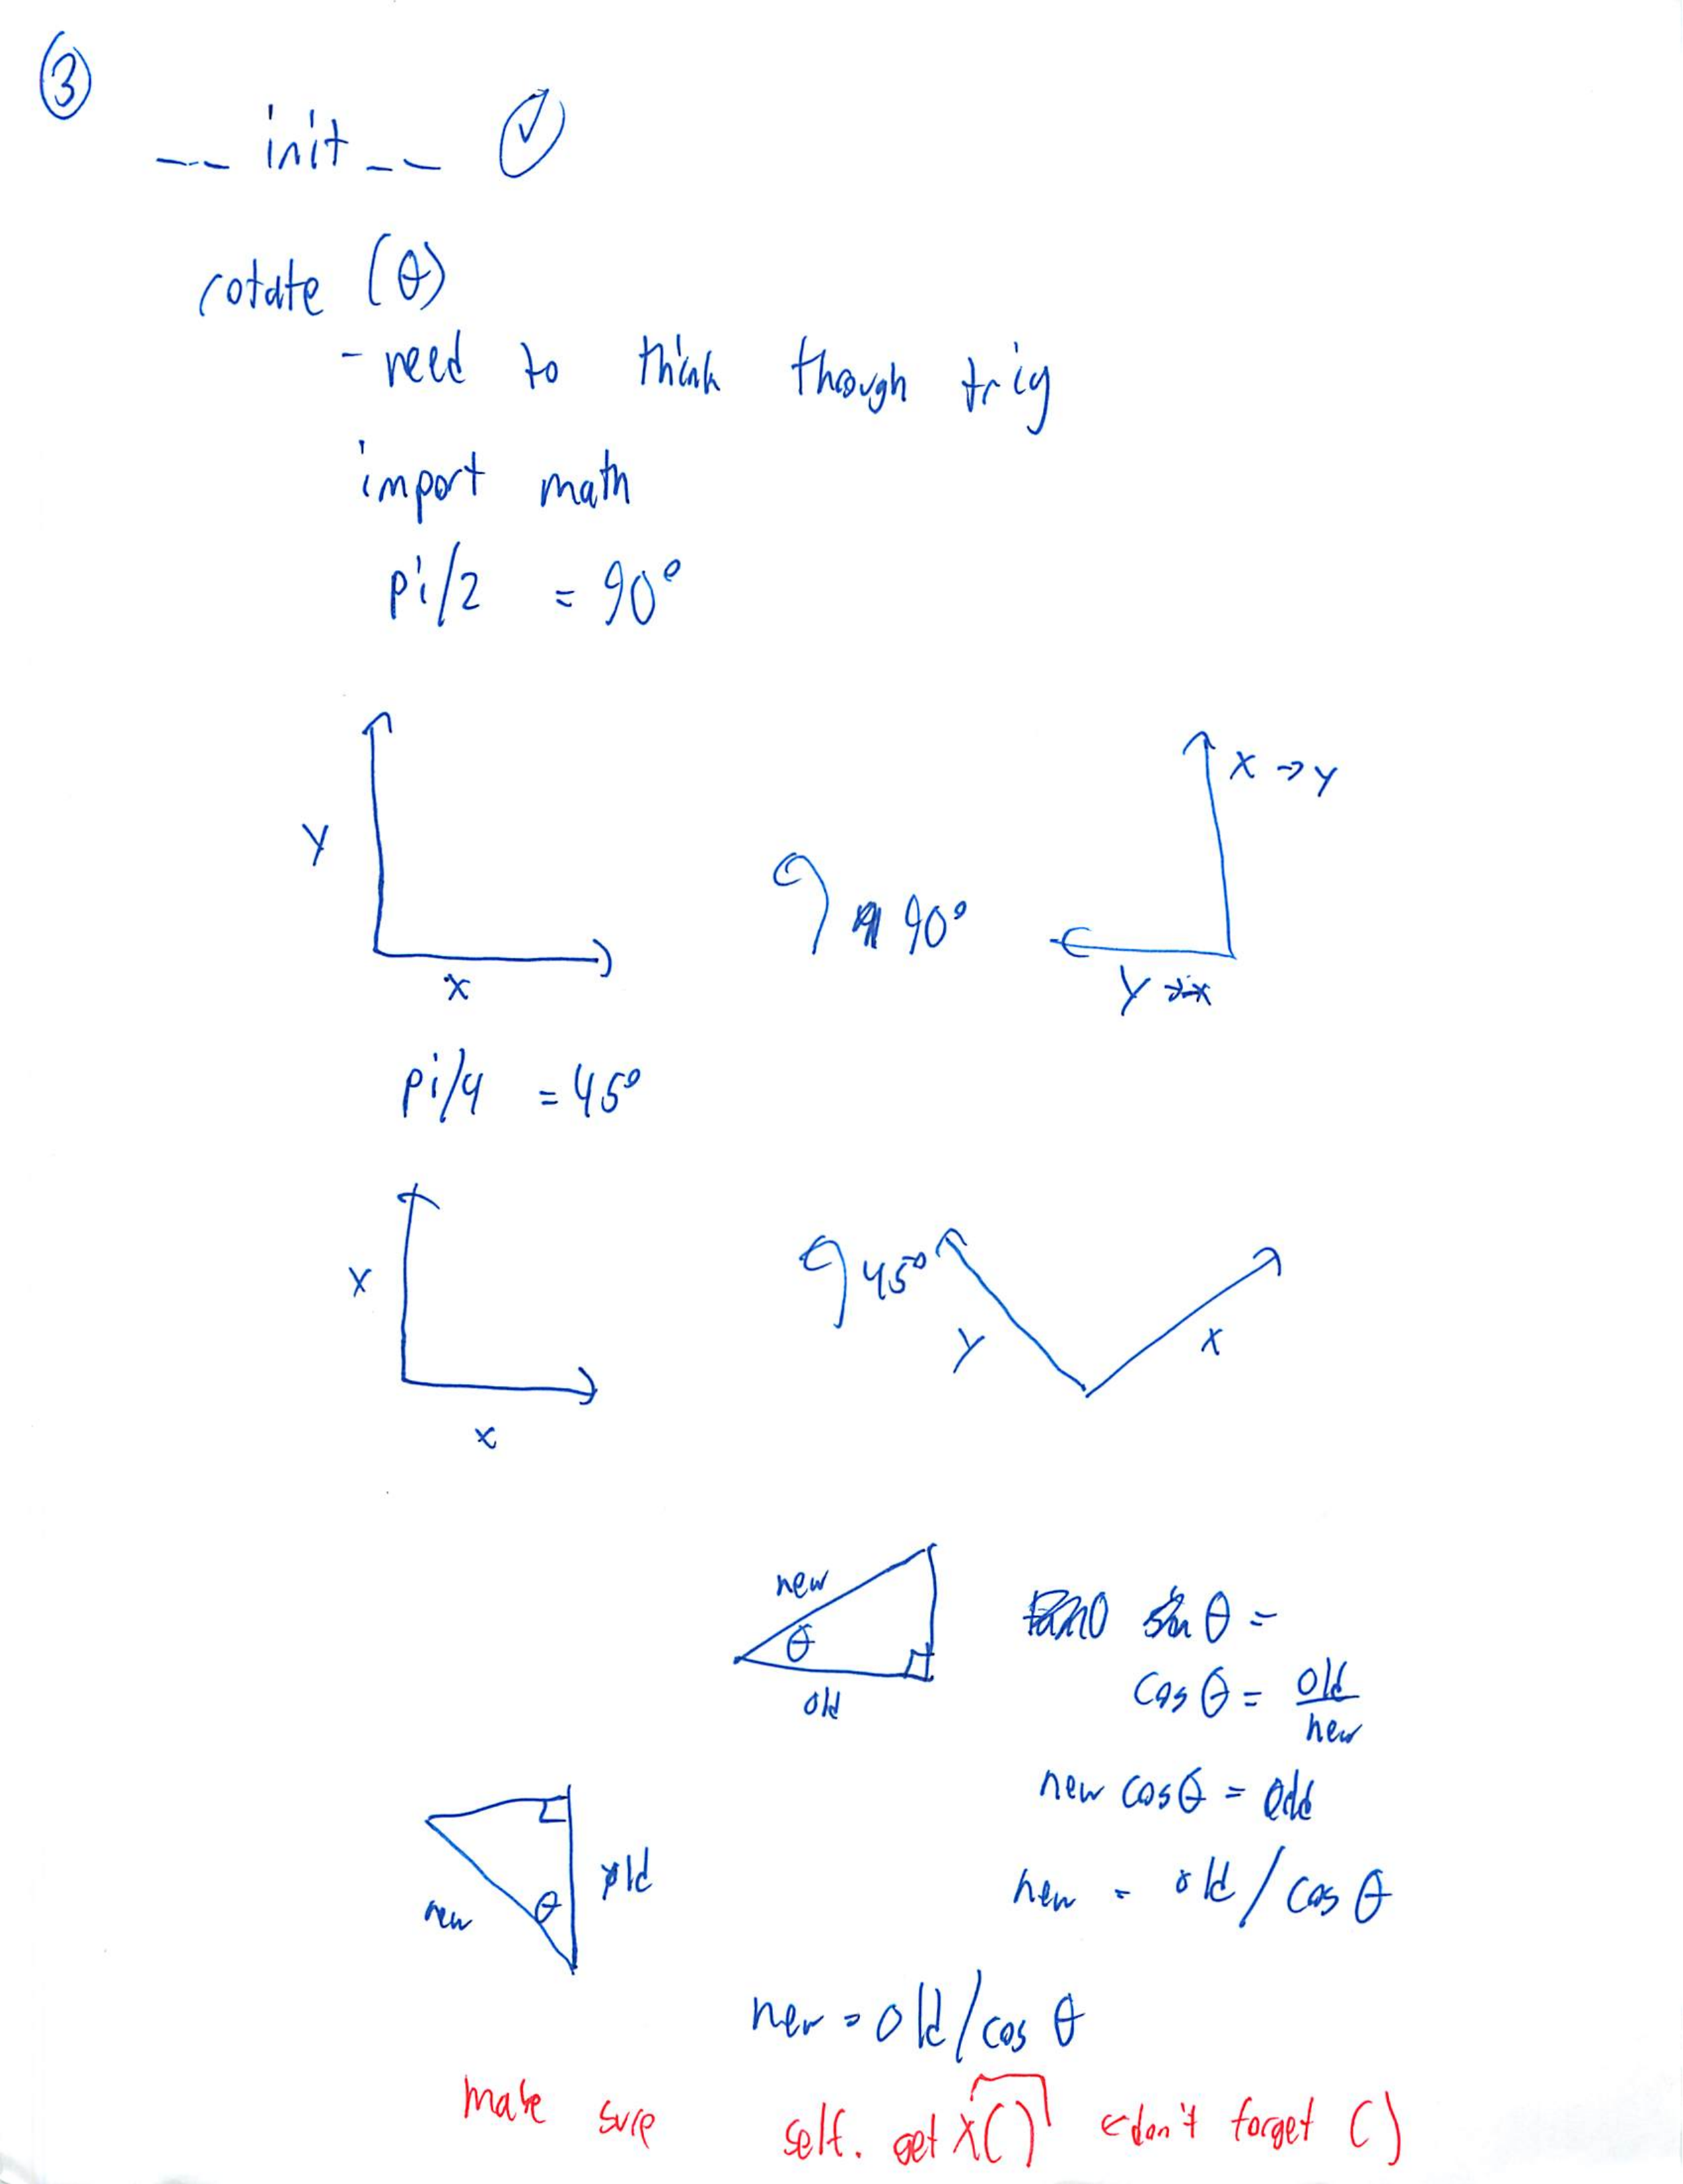 3
__ init __ ✓
rotate (θ)
- need to think though trig
import math
pi/2 = 90°
y
x
90°
x → y
y → -x
pi/4 = 45°
x
x
45°
y
x
new
θ
old
sin θ =
cos θ = old/new
new cos θ = old
new = old / cos θ
new
θ
old
new = old / cos θ
make sure self. get X() ← don't forget ()